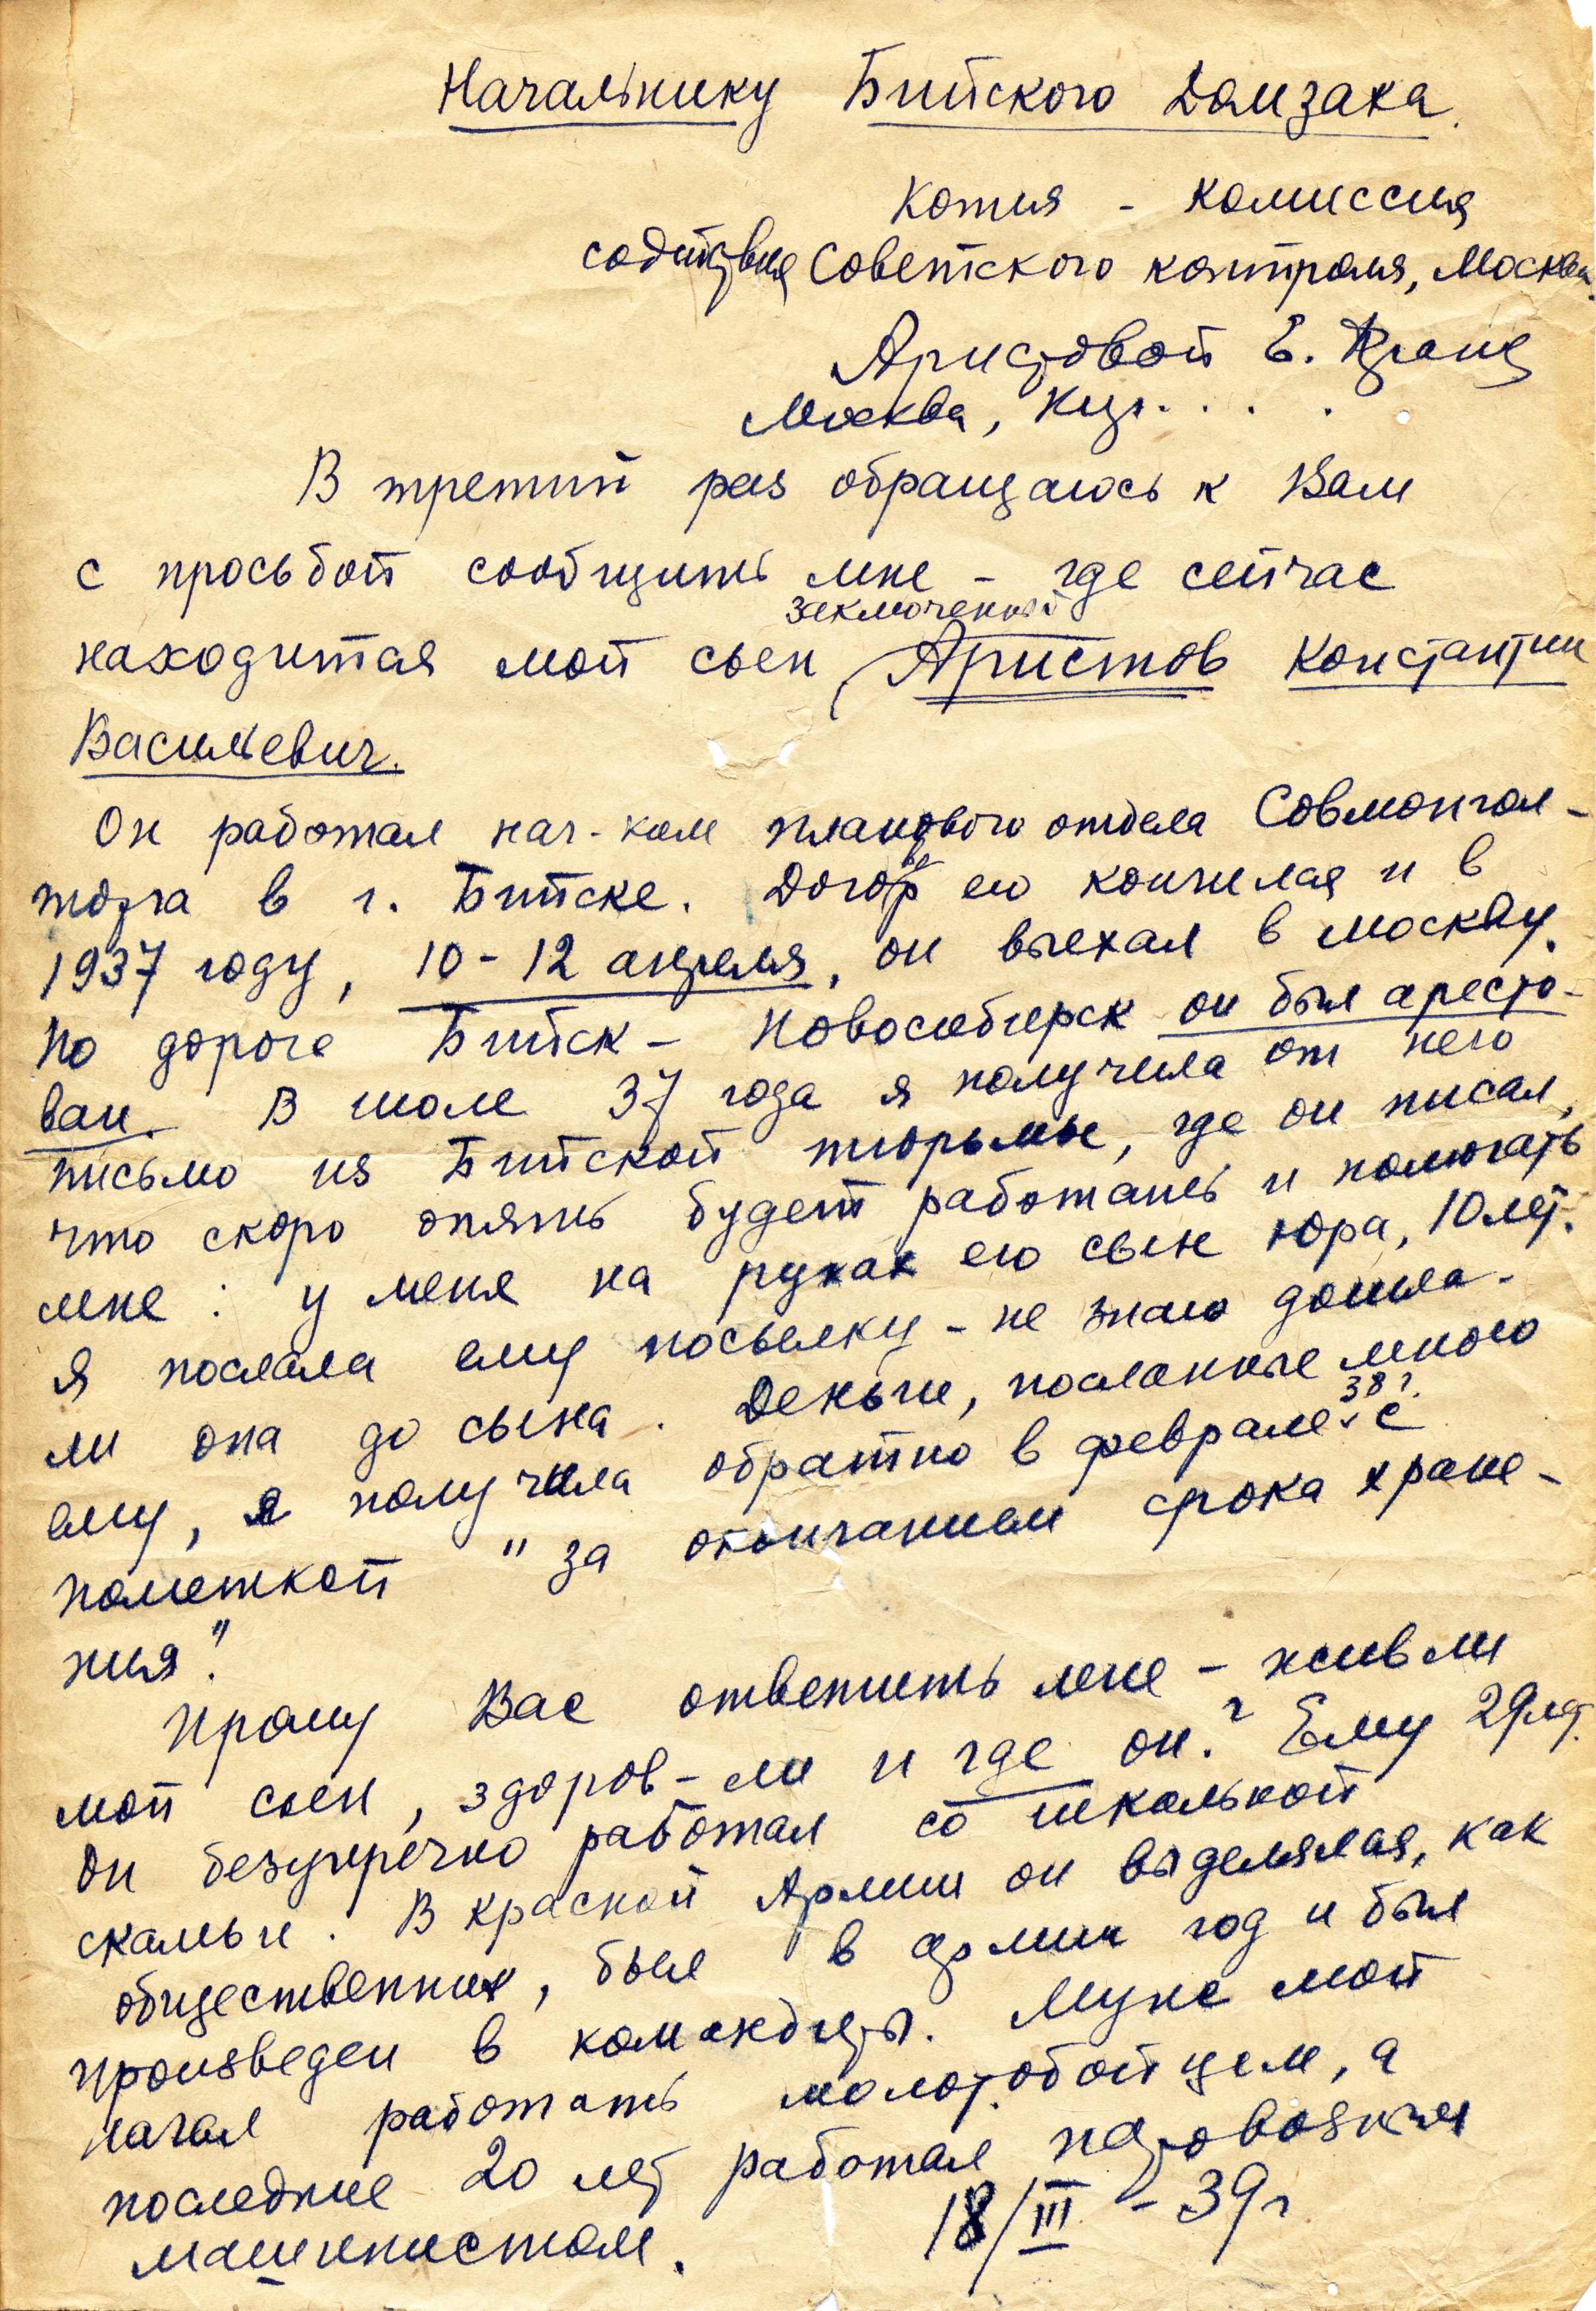 Начальнику Бийского Домзака.
Копия - Комиссия
содействия Советского контроля, Москва.
Аристовой Е.
Москва, Куз. . . .
В третий раз обращаюсь к Вам
с просьбой сообщить мне - где сейчас
заключенный
находится мой сын Аристов Константин
Васильевич.
Он работал нач-ком планового отдела Совмонгол-
торга в г. Бийске. Договор его кончился и в
1937 году, 10-12 апреля, он выехал в Москву.
По дороге Бийск - Новосибирск он был аресто-
ван. В июле 37 года я получила от него
письмо из Бийской тюрьмы, где он писал,
что скоро опять будет работать и помогать
мне: у меня на руках его сын Юра, 10 лет.
Я послала ему посылку - не знаю дошла-
ли она до сына. Деньги, посланные мною
ему, я получила обратно в феврале 38 г. с
пометкой "за окончанием срока хране-
ния".
Прошу Вас ответить мне - жив ли
мой сын, здоров-ли и где он? Ему 29 лет.
Он безупречно работал со школьной
скамьи. В Красной Армии он выделялся, как
общественник, был в армии год и был
произведен в командиры. Муж мой
начал работать молотобойцем, а
последние 20 лет работал паровозным
машинистом.
18/III - 39 г